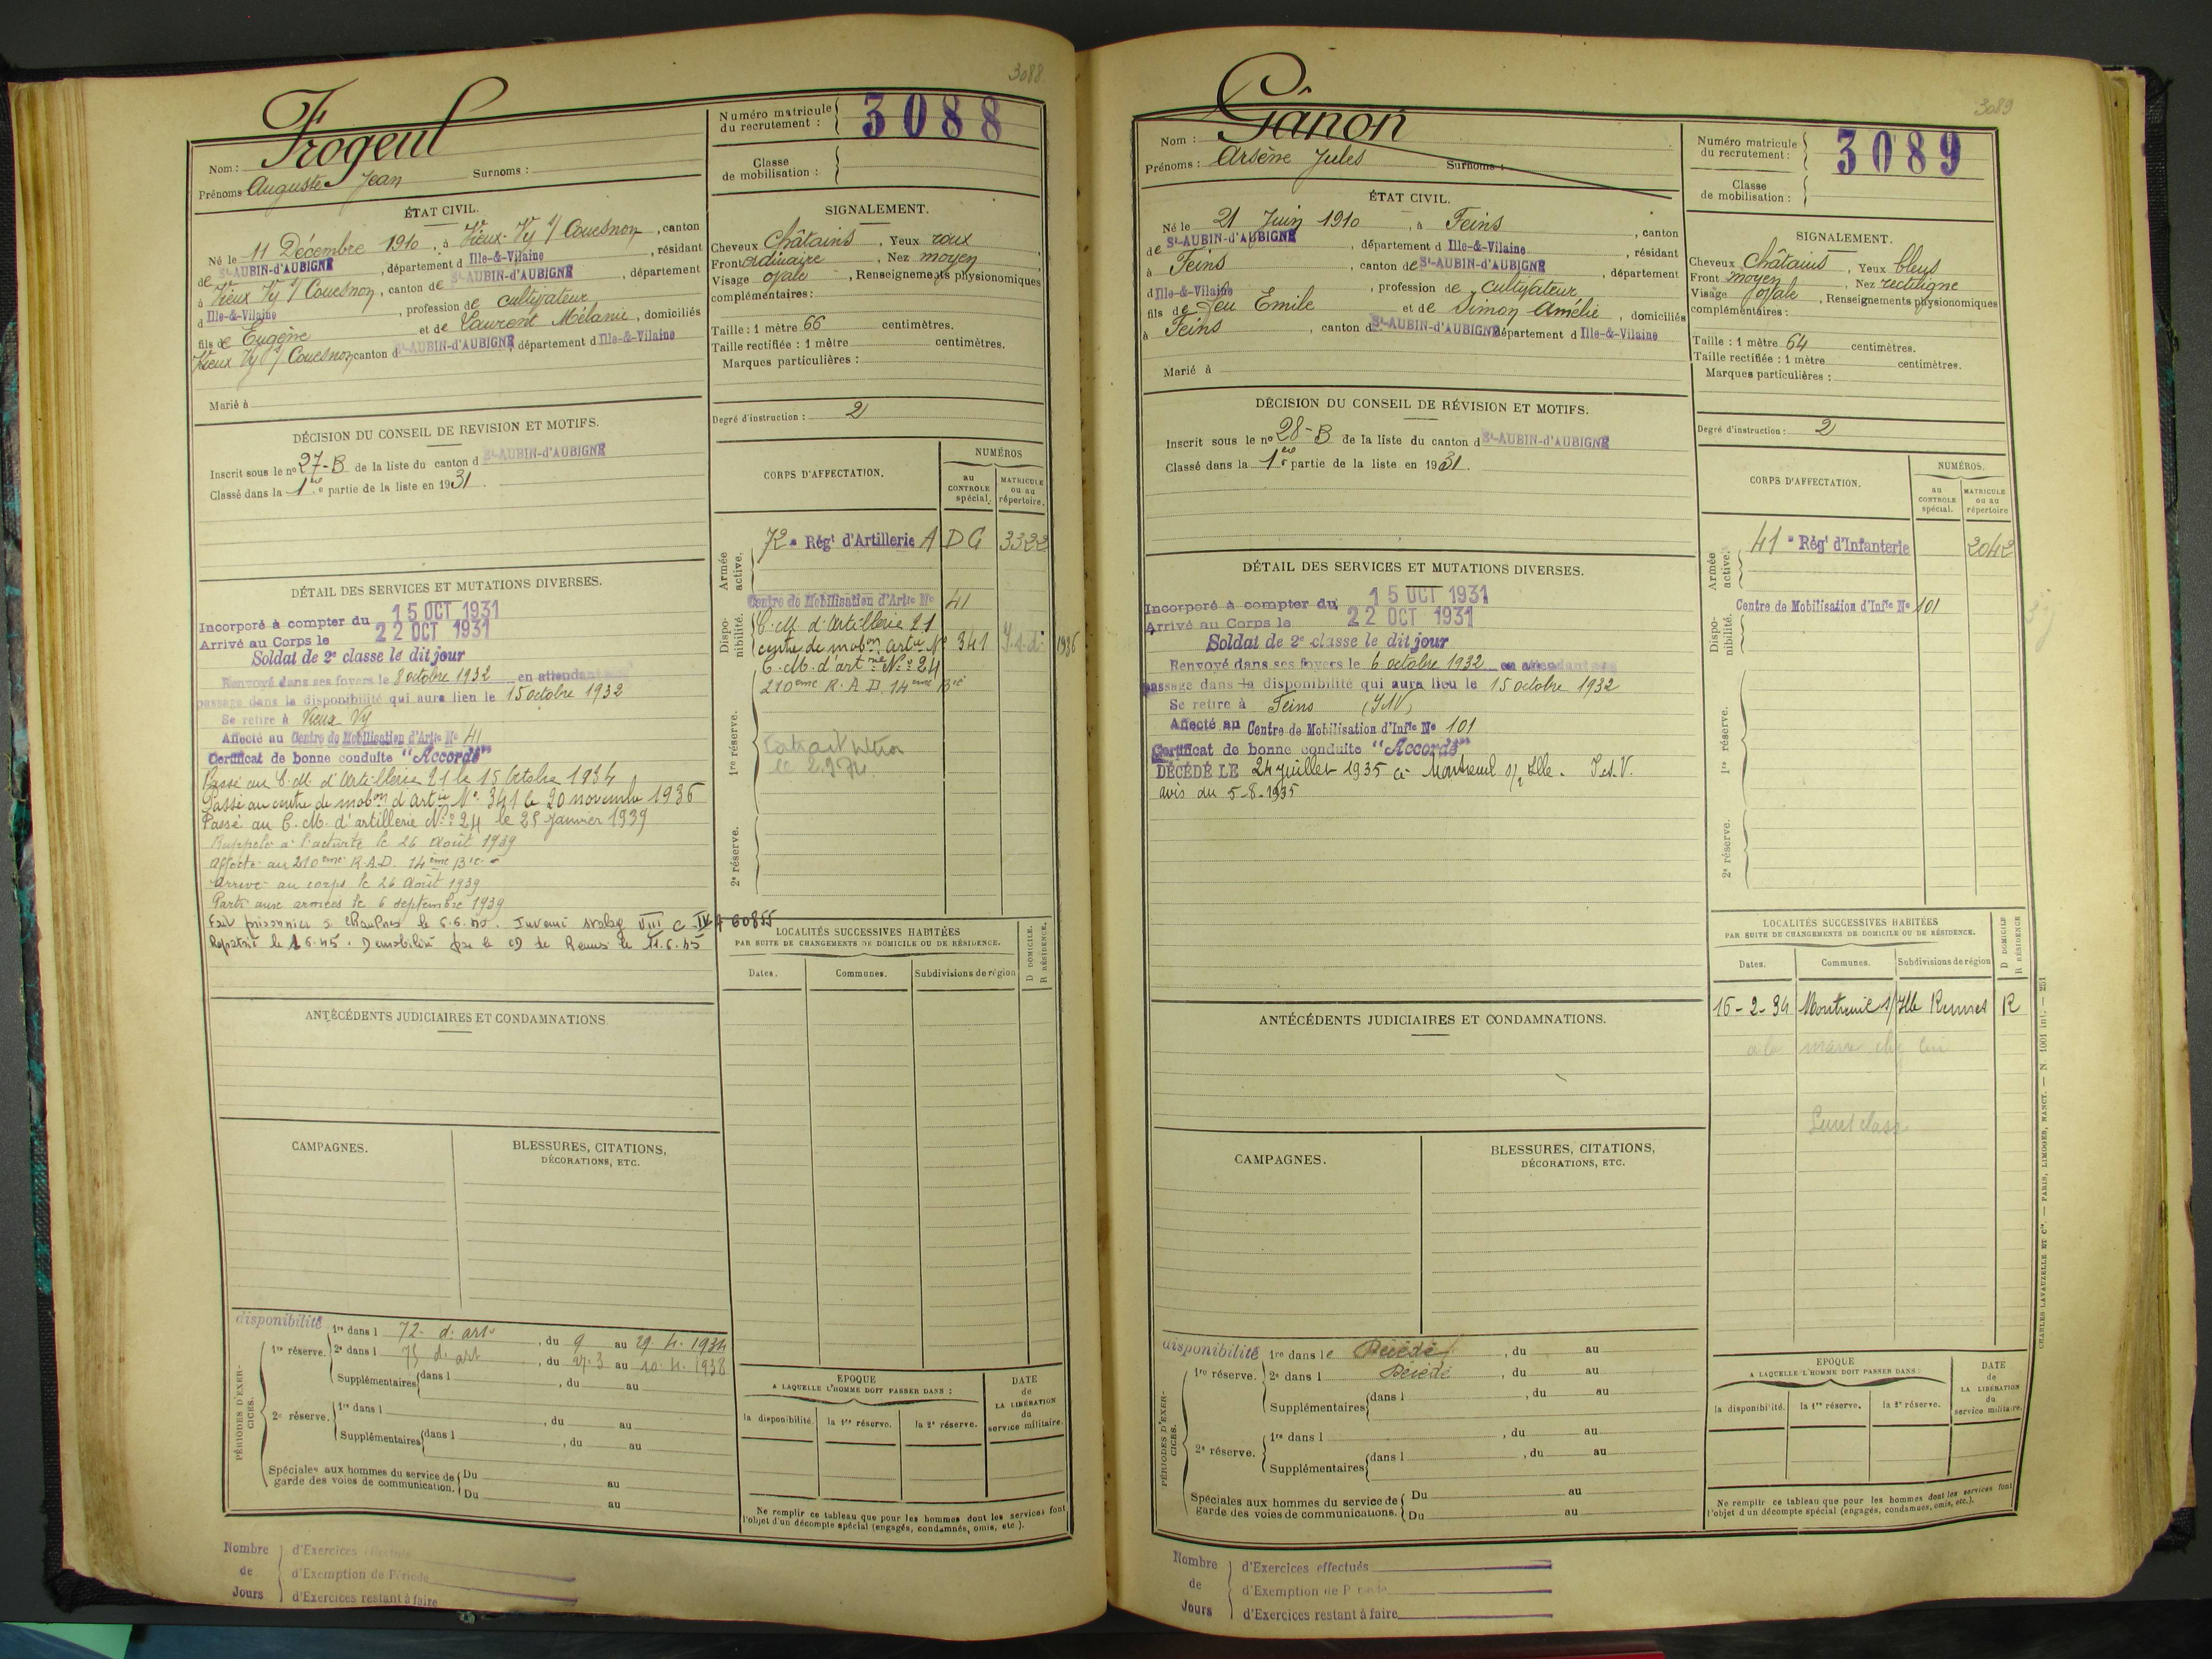 3088
Frogeul
Nom :
Prénoms : Auguste Jean Surnoms :
Numéro matricule du recrutement : 3088
Classe de mobilisation :
ÉTAT CIVIL.
Né le 11 Décembre 1910, à Vieux-Vy s/ Couesnon, canton
de St-AUBIN-d'AUBIGNÉ, département d Ille-&-Vilaine, résidant
à Vieux Vy s/ Couesnon, canton de St-AUBIN-d'AUBIGNÉ, département
d Ille-&-Vilaine, profession de cultivateur
fils de Eugène et de Laurent Mélanie, domiciliés
Vieux Vy s/ Couesnon canton d St-AUBIN-d'AUBIGNÉ, département d Ille-&-Vilaine
Marié à
SIGNALEMENT.
Cheveux Châtains, Yeux roux
Front ordinaire, Nez moyen
Visage ovale, Renseignements physionomiques
complémentaires :
Taille : 1 mètre 66 centimètres.
Taille rectifiée : 1 mètre centimètres.
Marques particulières :
Degré d'instruction : 2
DÉCISION DU CONSEIL DE REVISION ET MOTIFS.
Inscrit sous le nº 27-B de la liste du canton d St-AUBIN-d'AUBIGNÉ
Classé dans la 1ère partie de la liste en 1931.
CORPS D'AFFECTATION.
NUMÉROS
au CONTROLE spécial.
MATRICULE ou au répertoire.
Armée active.
72e Régt d'Artillerie A D C 3322
Dispo-nibilité.
Centre de Mobilisation d'Artie Nº 41
C.M. d'Artillerie 21
centre de mobon artie Nº 341 1936
C.M. d'artrie Nº 24
210ème R.A.D. 14ème Bie
1re réserve.
2e réserve.
DÉTAIL DES SERVICES ET MUTATIONS DIVERSES.
Incorporé à compter du 15 OCT 1931
Arrivé au Corps le 22 OCT 1931
Soldat de 2e classe le dit jour
Renvoyé dans ses foyers le 8 octobre 1932 en attendant
passage dans la disponibilité qui aura lieu le 15 octobre 1932
Se retire à Vieux Vy
Affecté au Centre de Mobilisation d'Artie Nº 41
Certificat de bonne conduite "Accordé"
Passé au C.M. d'Artillerie 21 le 15 Octobre 1934
Passé au centre de mobon d'artie Nº 341 le 20 novembre 1936
Passé au C.M. d'artillerie Nº 24 le 25 Janvier 1939
Rappelé à l'activité le 26 Août 1939
Affecté au 210ème R.A.D. 14ème Bie
Arrivé au corps le 26 Août 1939
Parti aux armées le 6 septembre 1939
Fait prisonnier à Chaulnes le 6.6.40. Interné stalag VIII C - IV A 60855
Rapatrié le 1.6.45. Démobilisé par le CD de Rennes le 11.6.45
LOCALITÉS SUCCESSIVES HABITÉES
PAR SUITE DE CHANGEMENTS DE DOMICILE OU DE RÉSIDENCE.
D DOMICILE.
R RÉSIDENCE.
Dates. Communes. Subdivisions de région
ANTÉCÉDENTS JUDICIAIRES ET CONDAMNATIONS
CAMPAGNES.
BLESSURES, CITATIONS,
DÉCORATIONS, ETC.
PÉRIODES D'EXERCICES.
disponibilité
1re réserve. 1re dans l 72e d'artie, du 9 au 29.4.1934
2e dans l 75 d'art, du 21.3 au 10.4.1938
Supplémentaires dans l , du au
2e réserve. 1re dans l , du au
Supplémentaires dans l , du au
Spéciales aux hommes du service de garde des voies de communication. Du au
Du au
EPOQUE
A LAQUELLE L'HOMME DOIT PASSER DANS :
la disponibilité. la 1re réserve. la 2e réserve.
DATE de LA LIBÉRATION du service militaire.
Ne remplir ce tableau que pour les hommes dont les services font
l'objet d'un décompte spécial (engagés, condamnés, omis, etc.).
Nombre de Jours
d'Exercices effectués
d'Exemption de Période
d'Exercices restant à faire
3089
Gânon
Nom :
Prénoms : Arsène Jules Surnoms :
Numéro matricule du recrutement : 3089
Classe de mobilisation :
ÉTAT CIVIL.
Né le 21 Juin 1910, à Feins, canton
de St-AUBIN-d'AUBIGNÉ, département d Ille-&-Vilaine, résidant
à Feins, canton de St-AUBIN-d'AUBIGNÉ, département
d Ille-&-Vilaine, profession de cultivateur
fils de feu Emile et de Simon Amélie, domiciliés
à Feins, canton d St-AUBIN-d'AUBIGNÉ département d Ille-&-Vilaine
Marié à
SIGNALEMENT.
Cheveux Châtains, Yeux bleus
Front moyen, Nez rectiligne
Visage ovale, Renseignements physionomiques
complémentaires :
Taille : 1 mètre 64 centimètres.
Taille rectifiée : 1 mètre centimètres.
Marques particulières :
Degré d'instruction : 2
DÉCISION DU CONSEIL DE RÉVISION ET MOTIFS.
Inscrit sous le nº 28-B de la liste du canton d St-AUBIN-d'AUBIGNÉ
Classé dans la 1ère partie de la liste en 1931.
CORPS D'AFFECTATION.
NUMÉROS.
au CONTROLE spécial.
MATRICULE ou au répertoire
Armée active.
41e Régt d'Infanterie 2042
Dispo-nibilité.
Centre de Mobilisation d'Infie Nº 101
1re réserve.
2e réserve.
DÉTAIL DES SERVICES ET MUTATIONS DIVERSES.
Incorporé à compter du 15 OCT 1931
Arrivé au Corps le 22 OCT 1931
Soldat de 2e classe le dit jour
Renvoyé dans ses foyers le 6 octobre 1932 en attendant
passage dans la disponibilité qui aura lieu le 15 octobre 1932
Se retire à Feins (I&V)
Affecté au Centre de Mobilisation d'Infie Nº 101
Certificat de bonne conduite "Accordé"
DÉCÉDÉ LE 24 juillet 1935 à Montreuil s/ Ille. I.et.V.
avis du 5-8-1935
LOCALITÉS SUCCESSIVES HABITÉES
PAR SUITE DE CHANGEMENTS DE DOMICILE OU DE RÉSIDENCE.
D DOMICILE
R RÉSIDENCE.
Dates. Communes. Subdivisions de région
16-2-34 Montreuil s/ Ille Rennes R
ANTÉCÉDENTS JUDICIAIRES ET CONDAMNATIONS.
CAMPAGNES.
BLESSURES, CITATIONS,
DÉCORATIONS, ETC.
PÉRIODES D'EXERCICES.
disponibilité
1re réserve. 1re dans le Décédé, du au
2e dans l Décédé, du au
Supplémentaires dans l , du au
2e réserve. 1re dans l , du au
Supplémentaires dans l , du au
Spéciales aux hommes du service de garde des voies de communications. Du au
Du au
EPOQUE
A LAQUELLE L'HOMME DOIT PASSER DANS :
la disponibilité. la 1re réserve. la 2e réserve.
DATE de LA LIBÉRATION du service militaire.
Ne remplir ce tableau que pour les hommes dont les services font
l'objet d'un décompte spécial (engagés, condamnés, omis, etc.).
Nombre de Jours
d'Exercices effectués
d'Exemption de Période
d'Exercices restant à faire
CHARLES-LAVAUZELLE ET Cie. — PARIS, LIMOGES, NANCY. — N 1001 int. — 251